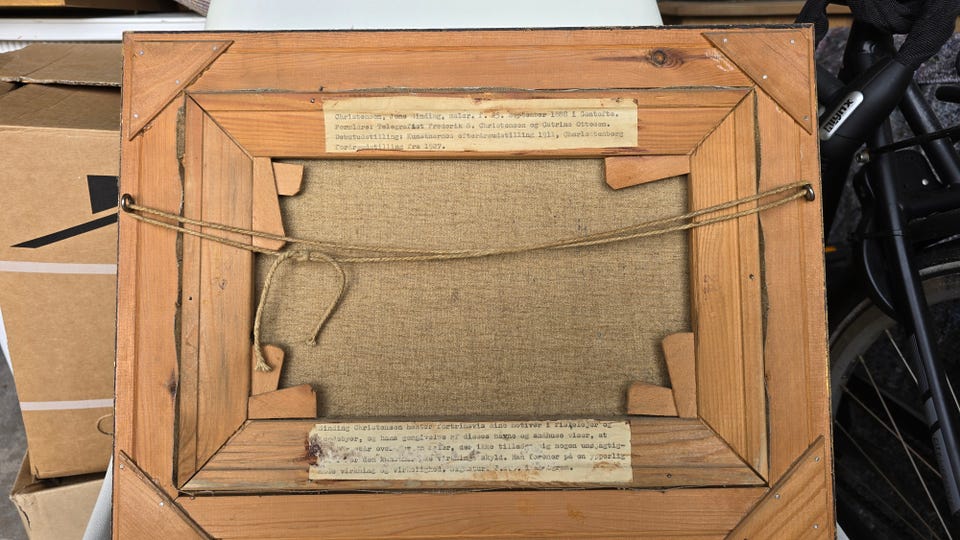 Christensen, Jens Sinding, maler, f. 23. September 1888 i Gentofte.
Forældre: Telegrafist Frederik S. Christensen og Catrine Ottesen.
Debutudstilling: Kunstnernes efterårsudstilling 1911, Charlottenborg
Forårsudstilling fra 1927.
Sinding Christensen henter fortrinsvis sine motiver i fiskelejer og
og hans gengivelse af disses havne og småhuse viser, at
over der ikke tillader sig nogen unøjagtig-
for den virkning skyld. Han forener på en ypperlig
virkning og virkelighed.
MYNX